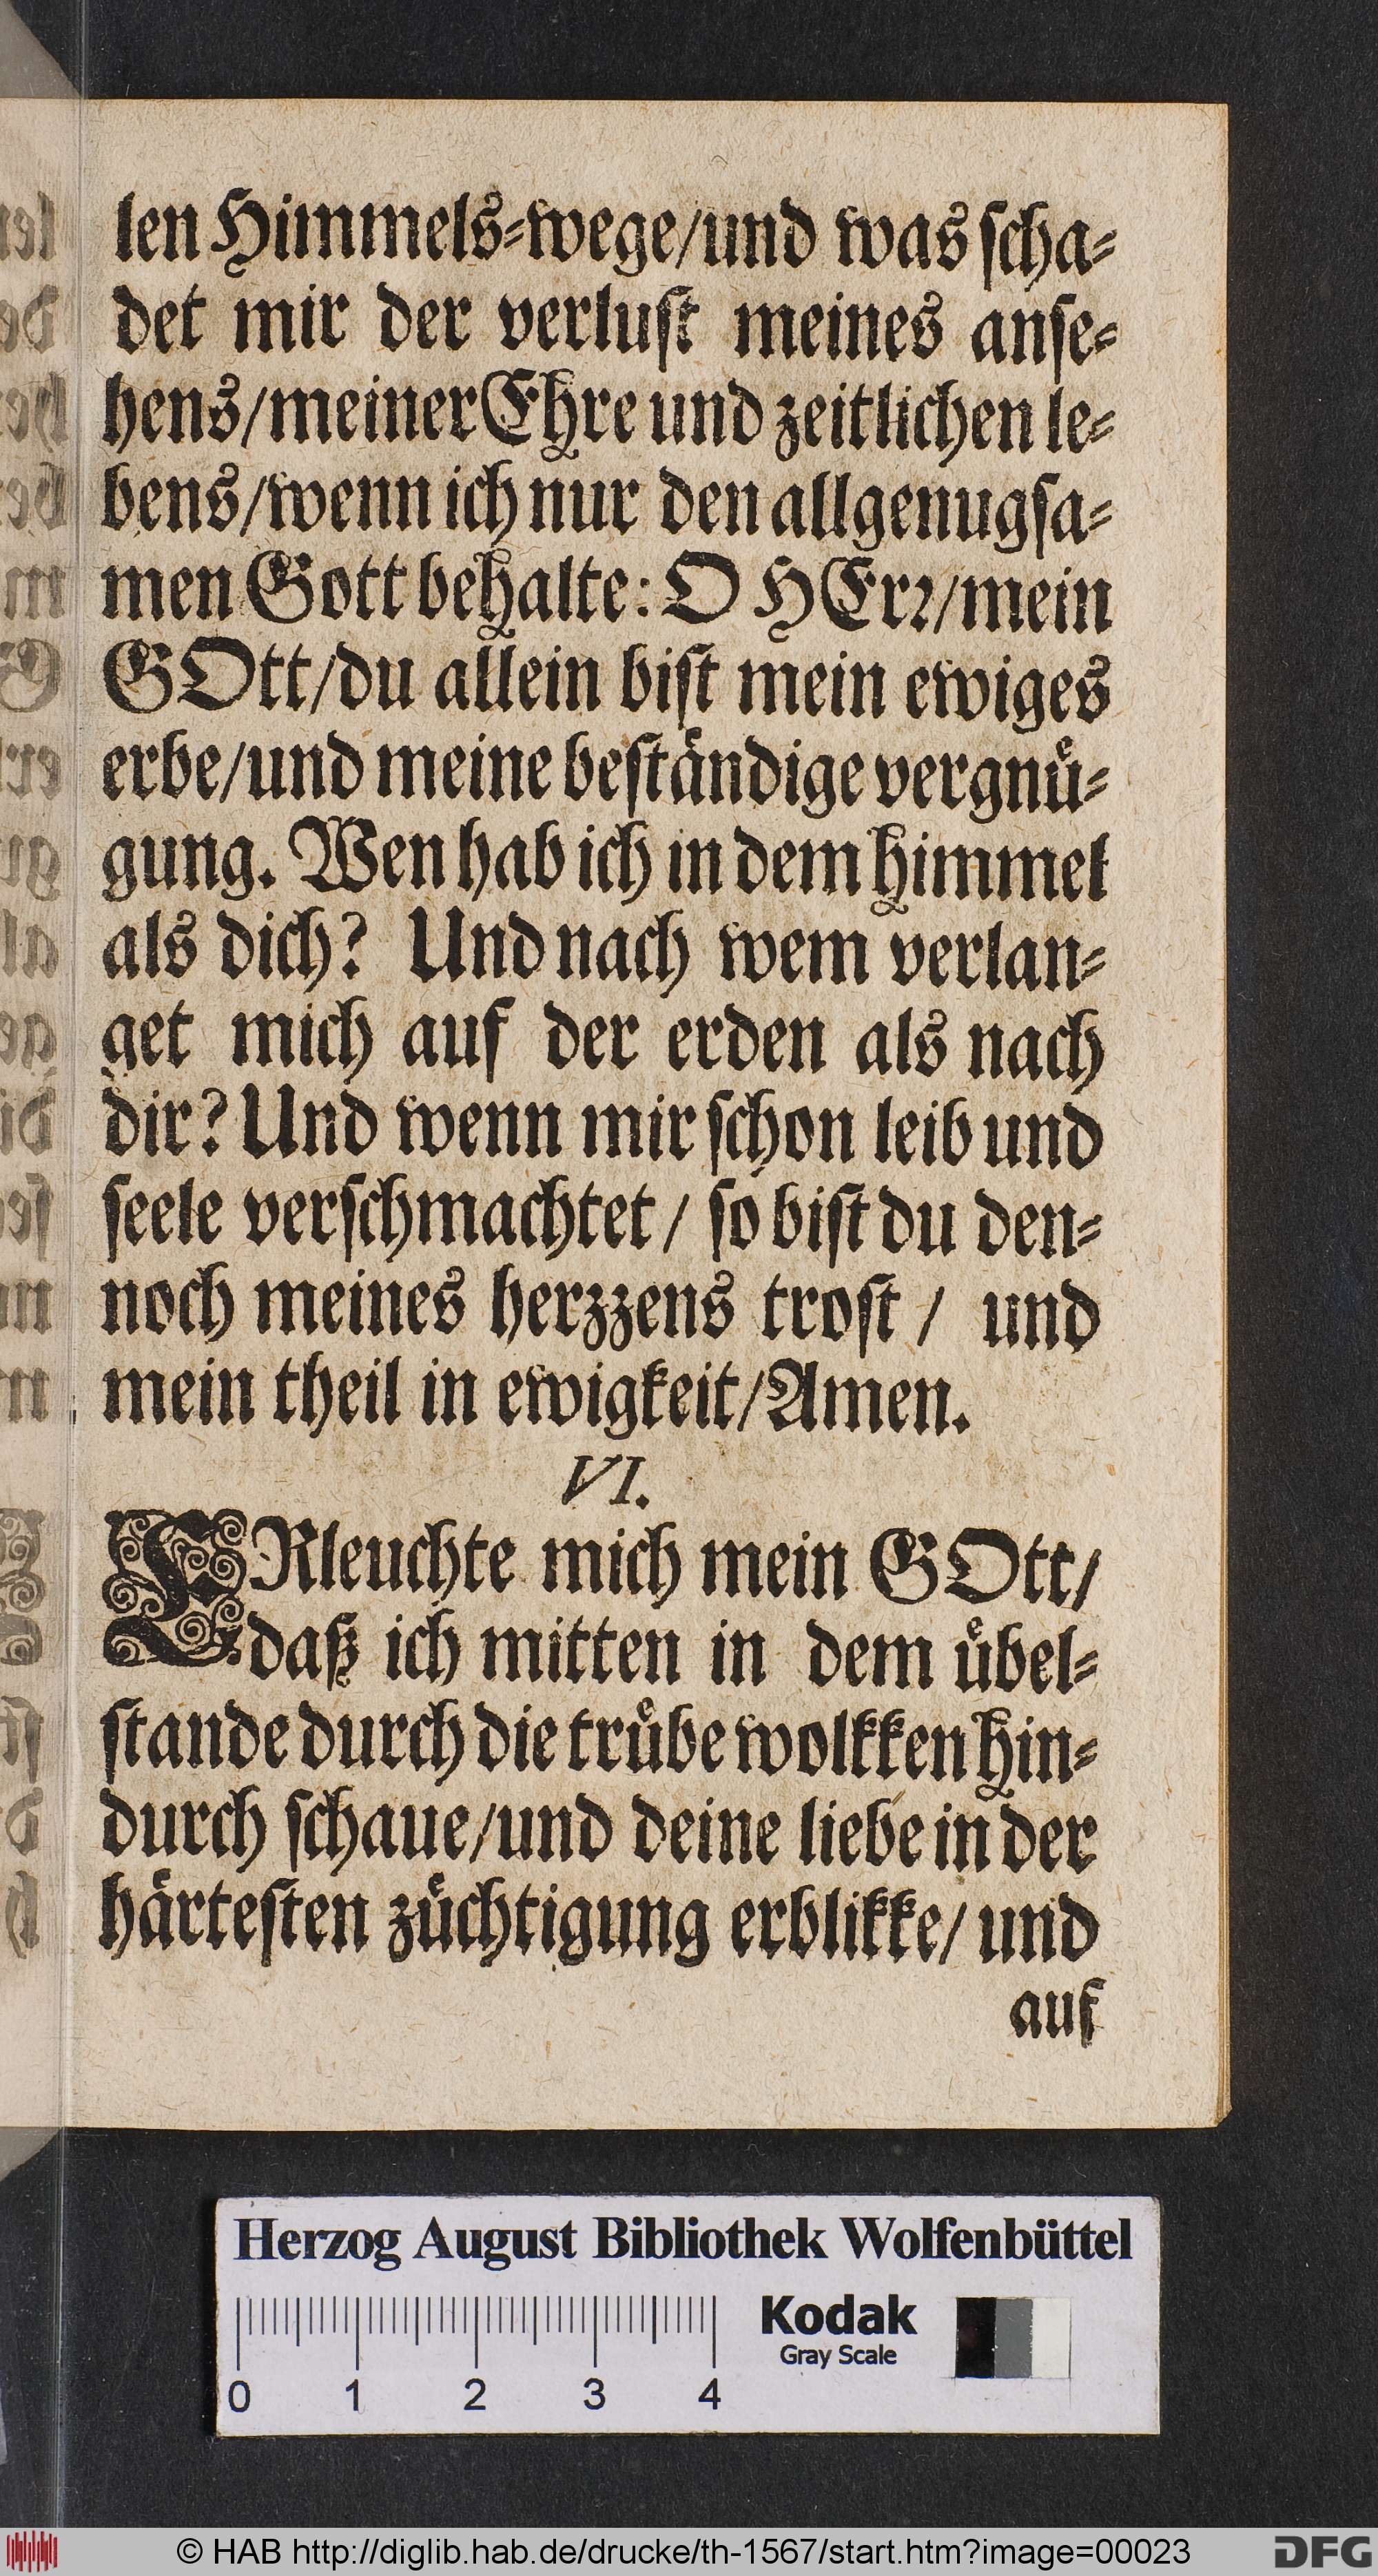 len Himmels-wege/und was scha-
det mir der verlust meines anse-
hens/meiner Ehre und zeitlichen le-
bens/wenn ich nur den allgenugsa-
men Gott behalte: O HErꝛ/mein
GOtt/du allein bist mein ewiges
erbe/und meine beständige vergnü-
gung. Wen hab ich in dem himmel
als dich? Und nach wem verlan-
get mich auf der erden als nach
dir? Und wenn mir schon leib und
seele verschmachtet / so bist du den-
noch meines herzzens trost / und
mein theil in ewigkeit/Amen.
VI.
ERleuchte mich mein GOtt/
daß ich mitten in dem übel-
stande durch die trübe wolkken hin-
durch schaue/und deine liebe in der
härtesten züchtigung erblikke/ und
auf
Herzog August Bibliothek Wolfenbüttel
Kodak
Gray Scale
0 1 2 3 4
© HAB http://diglib.hab.de/drucke/th-1567/start.htm?image=00023
DFG